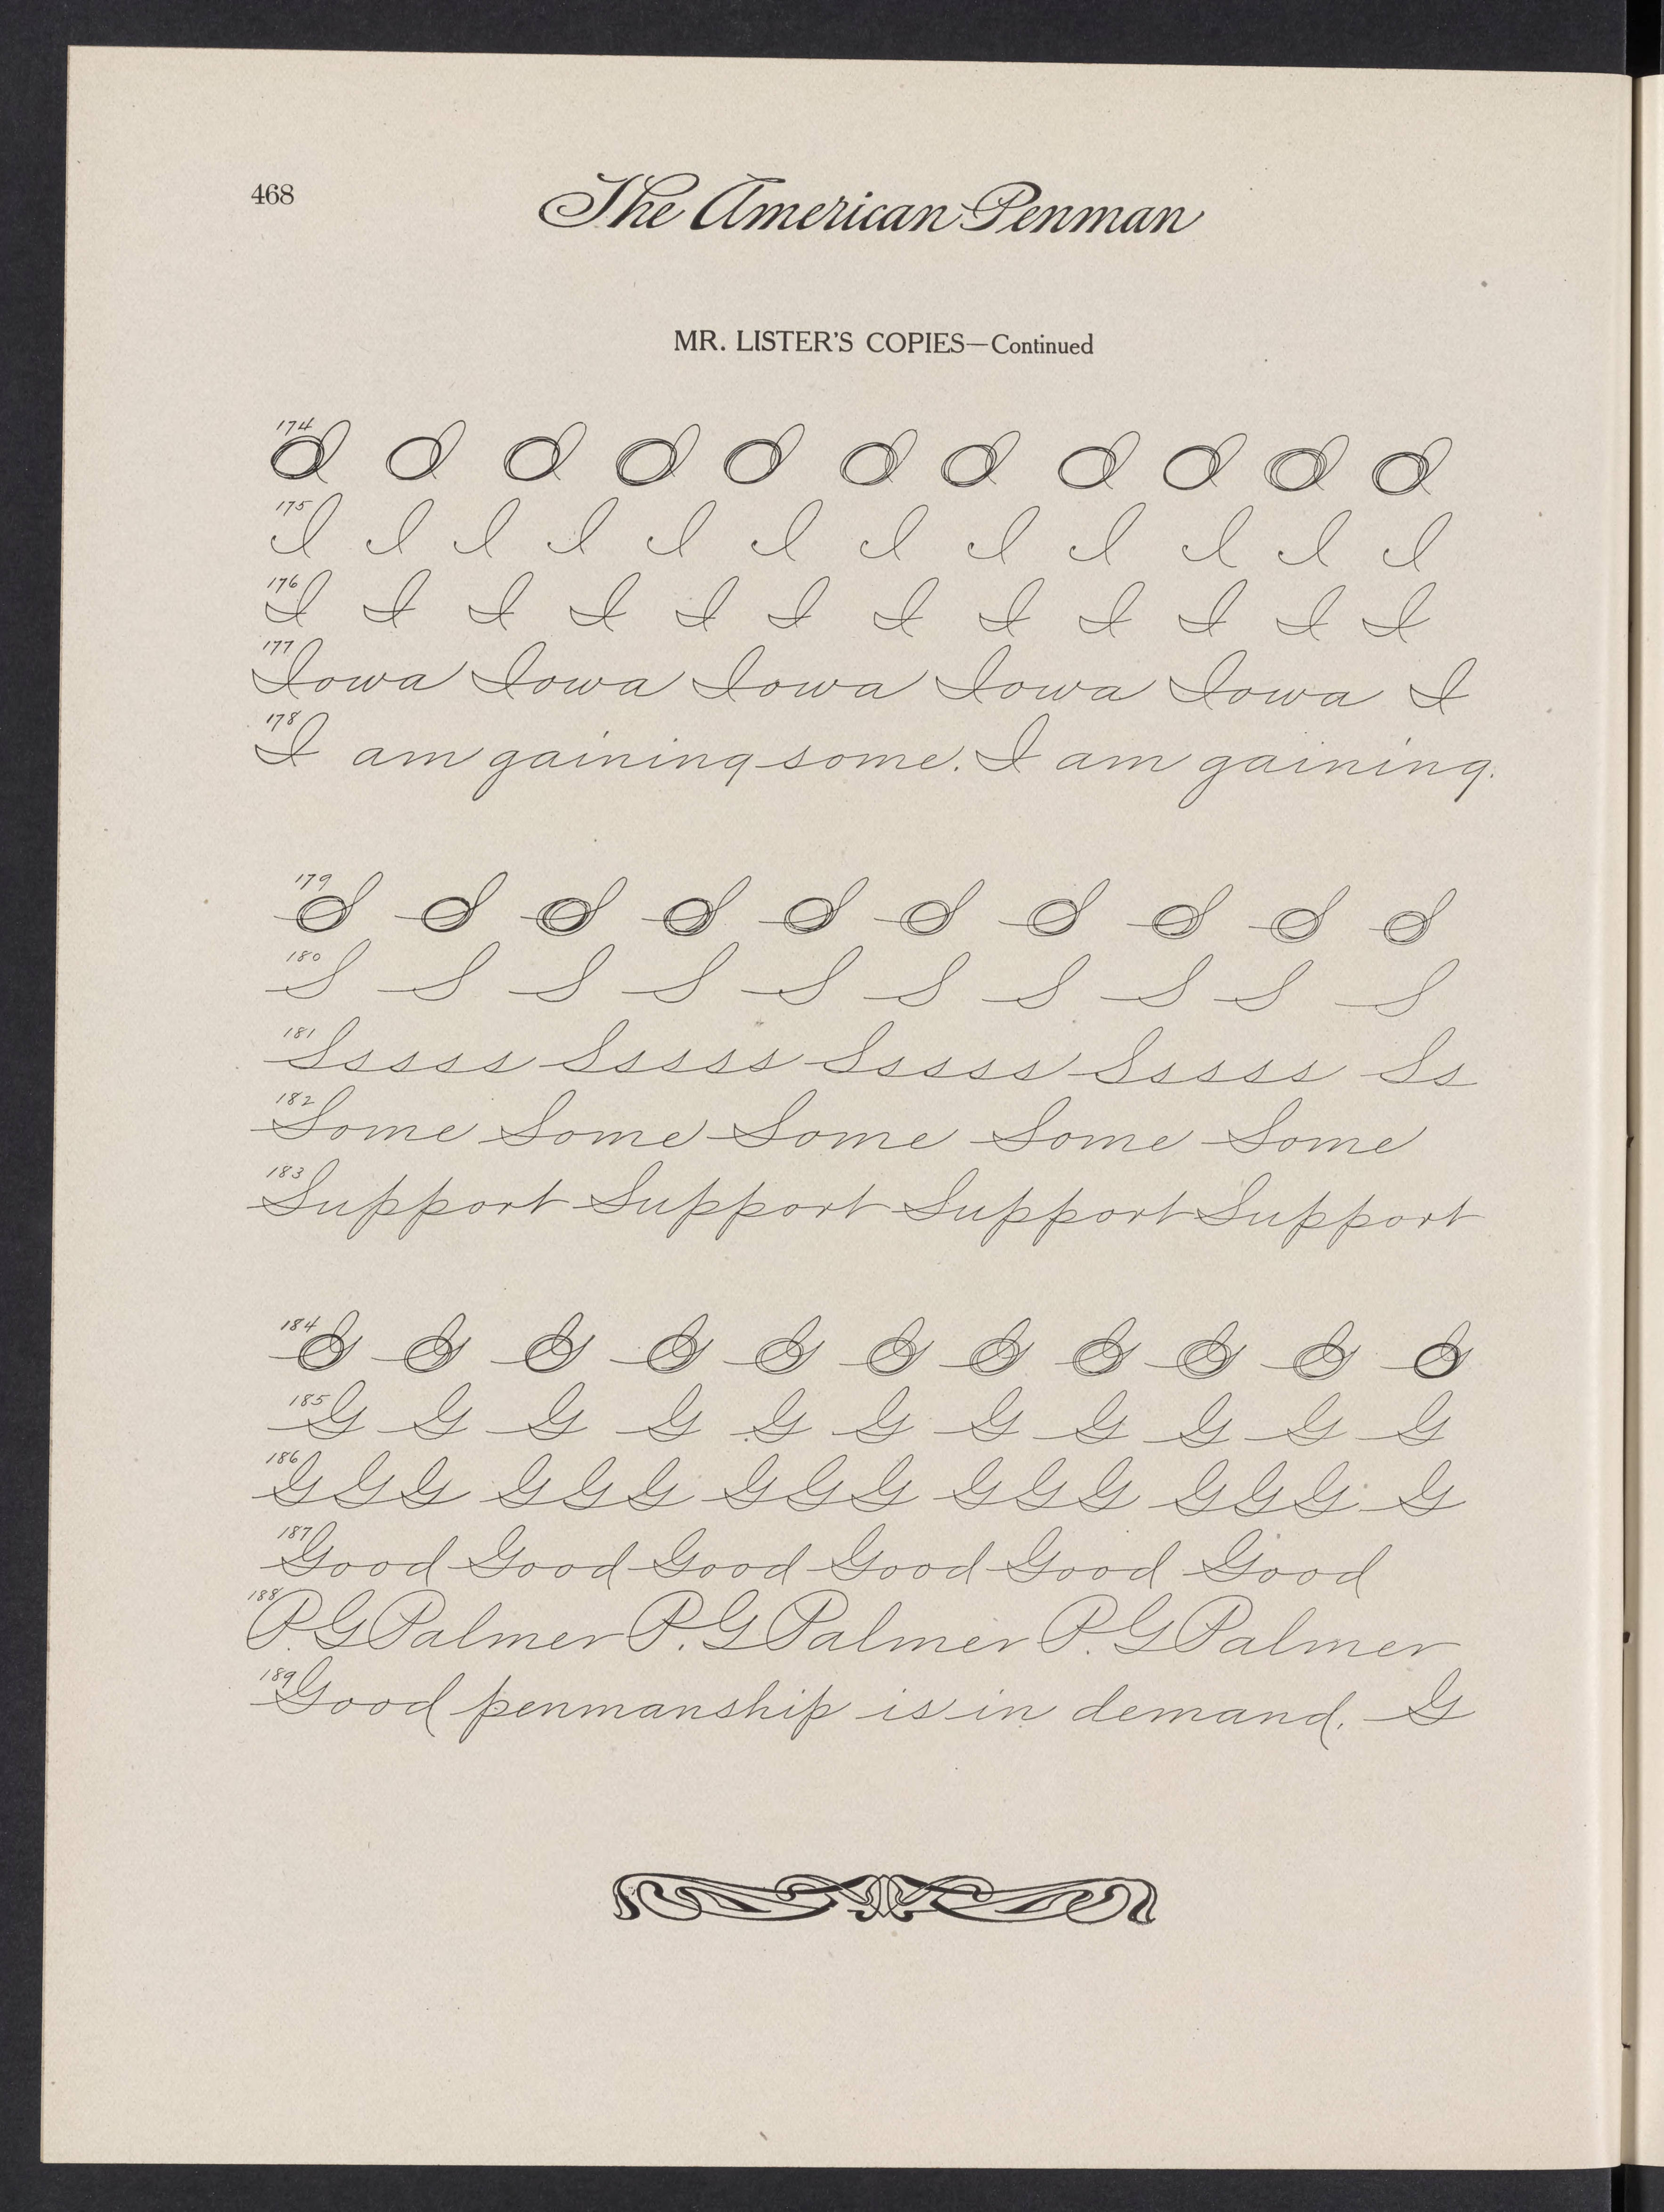 468
The American Penman
MR. LISTER'S COPIES—Continued
174
175 I I I I I I I I I I I I
176 I I I I I I I I I I I I
177 Iowa Iowa Iowa Iowa Iowa I
178 I am gaining some. I am gaining.
179
180 S S S S S S S S S S
181 Sssss Sssss Sssss Sssss Ss
182 Some Some Some Some Some
183 Support Support Support Support
184
185 G G G G G G G G G G G
186 G G G G G G G G G G G G G G G G
187 Good Good Good Good Good Good
188 P. G Palmer P. G Palmer P. G Palmer
189 Good penmanship is in demand. G